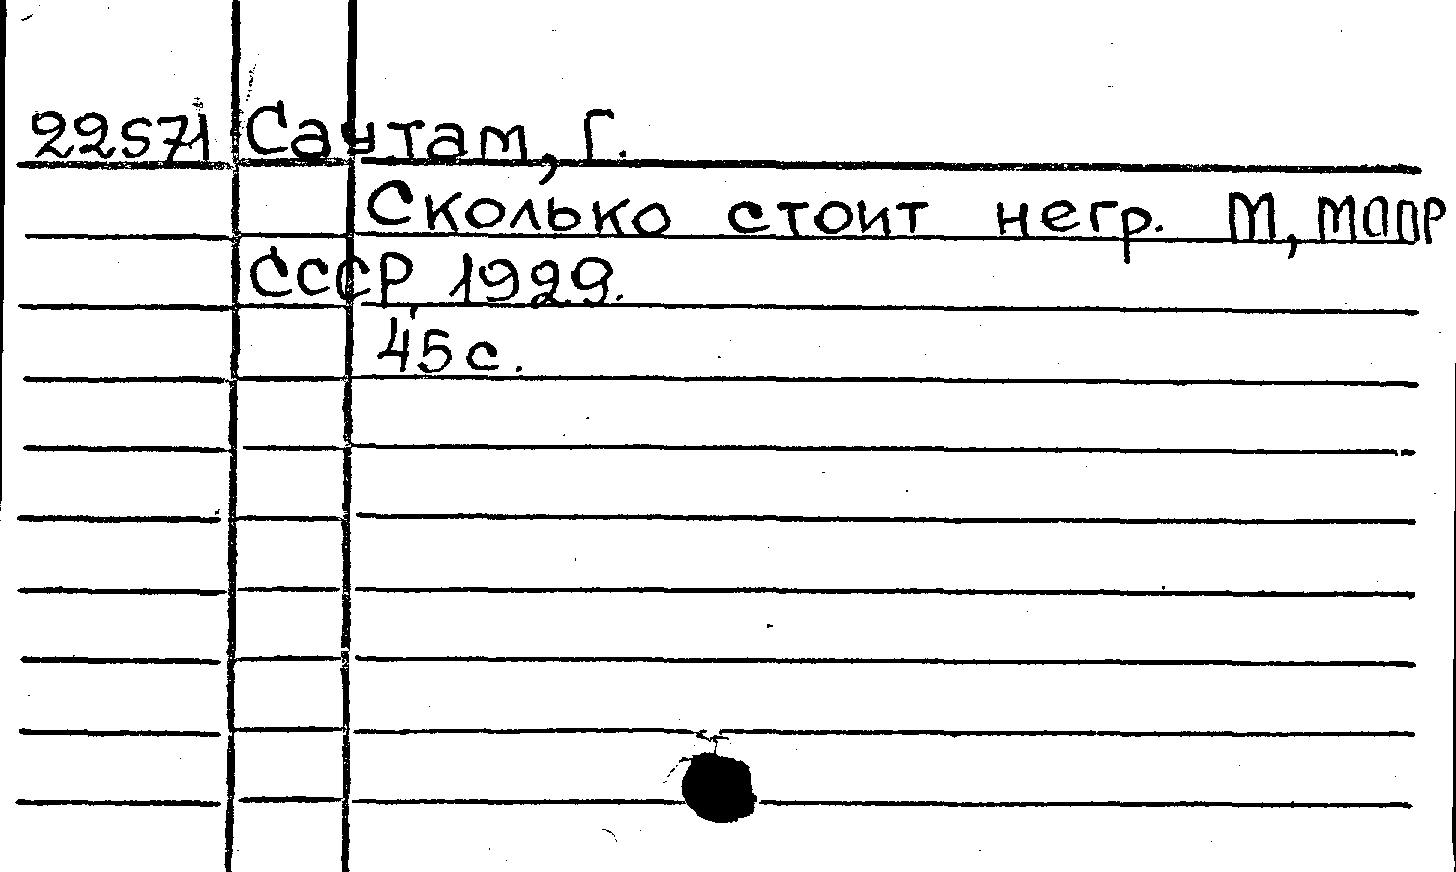 22571 Саутам, Г.
Сколько стоит негр. М, МОПР
СССР, 1929.
45 с.